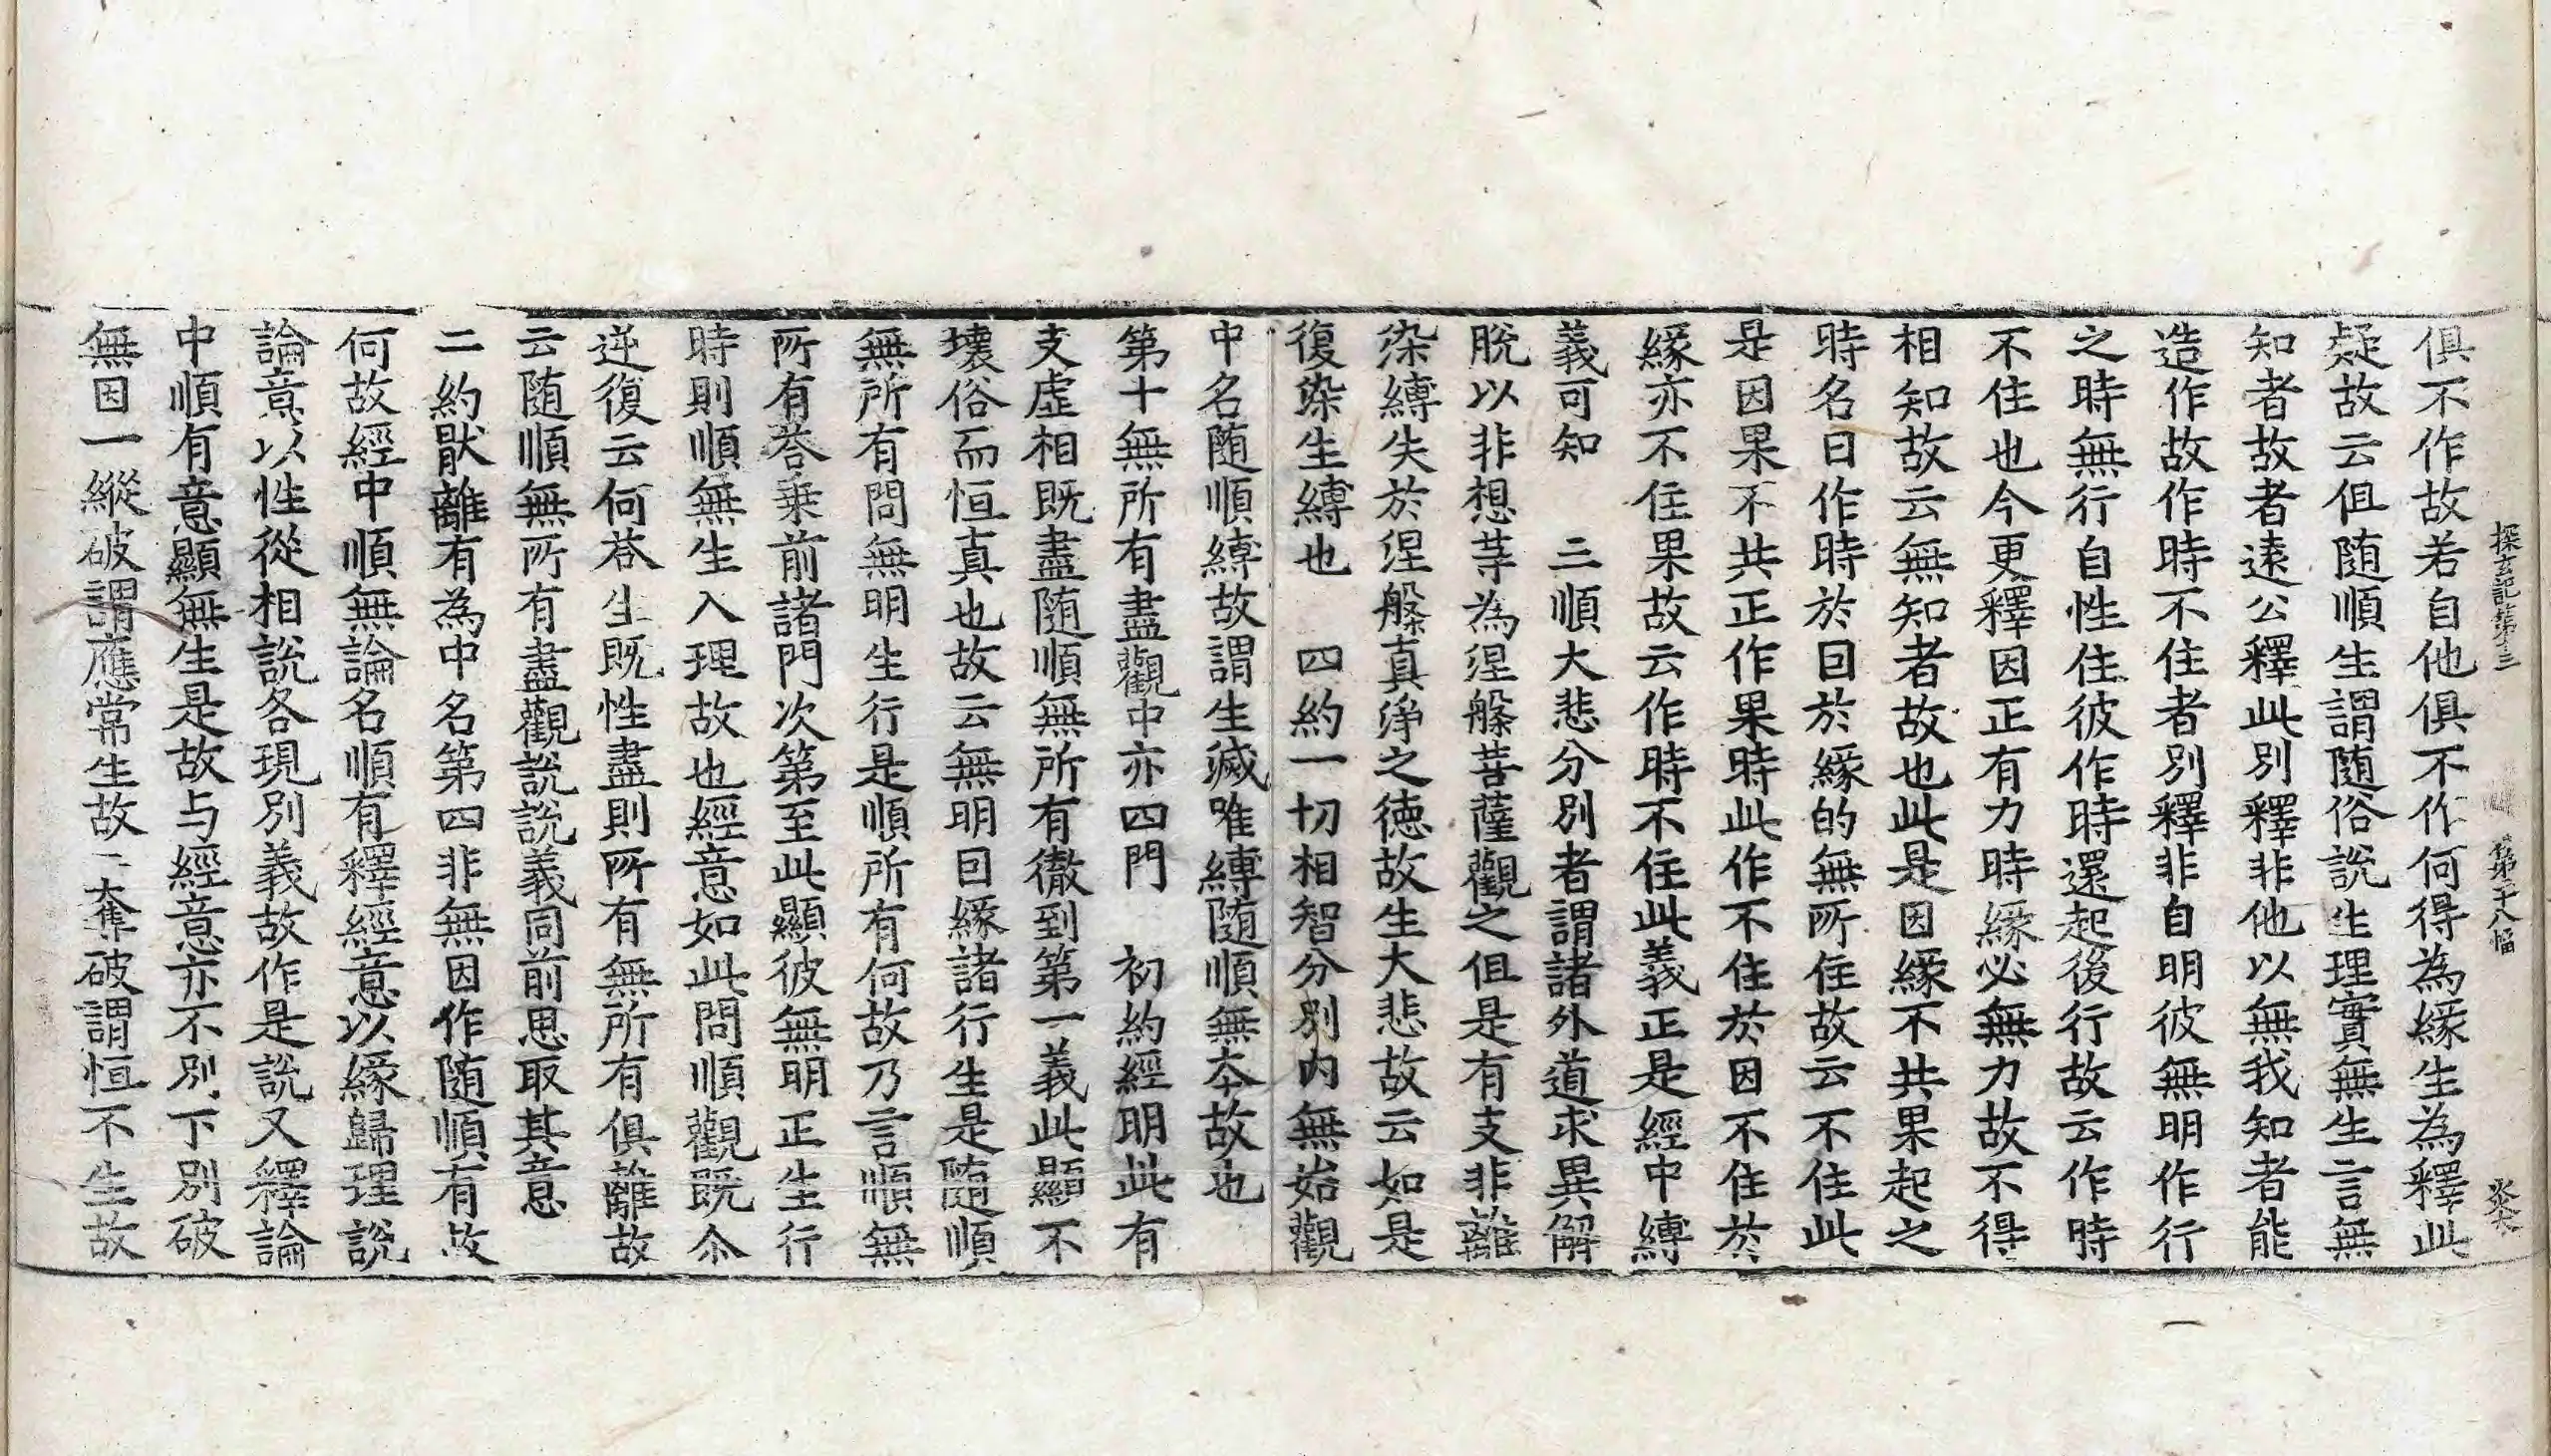 探玄記第十三　第二十八幅
俱不作故若自他俱不作何得為緣生為釋此
疑故云但随順生謂随俗說生理實無生言無
知者故者遠公釋此別釋非他以無我知者能
造作故作時不住者別釋非自明彼無明作行
之時無行自性住彼作時還起後行故云作時
不住也今更釋因正有力時緣必無力故不得
相知故云無知者故也此是因緣不共果起之
時名曰作時於因於緣的無所住故云不住此
是因果不共正作果時此作不住於因不住於
緣亦不住果故云作時不住此義正是經中縛
義可知　三順大悲分別者謂諸外道求異解
脫以非想䓁為涅槃菩薩觀之但是有支非離
染縛失於涅槃真淨之徳故生大悲故云如是
復染生縛也　四約一切相智分別内無始觀
中名随順縛故謂生滅唯縛随順無夲故也
第十無所有盡觀中亦四門　初約經明此有
支虛相既盡随順無所有徹到第一義此顯不
壞俗而恒真也故云無明因緣諸行生是随順
無所有問無明生行是順所有何故乃言順無
所有荅乗前諸門次第至此顯彼無明正生行
時則順無生入理故也經意如此問順觀既尒
逆復云何荅生既性盡則所有無所有俱離故
云随順無所有盡觀說說義同前思取其意
二約猒離有為中名第四非無因作随順有故
何故經中順無論名順有釋經意以緣歸理說
論意以性從相說各現別義故作是說又釋論
中順有意顯無生是故与經意亦不別下別破
無因一縱破謂應常生故二奪破謂恒不生故